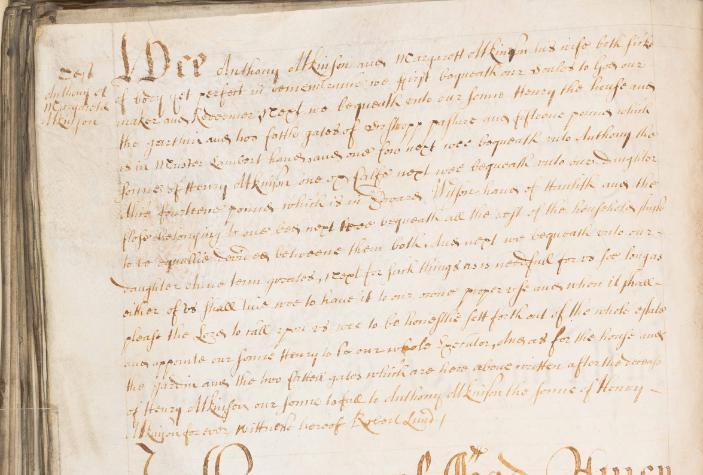 Test
Anthony et
Margareta
Atkinson
Wee Anthony Atkinson and Margarett Atkinson his wife both sicke
of body yet perfect in remembrance we first bequeath our soules to God our
maker and Redeemer, Next we bequeath unto our sonne Henry the house and
the garthin and two cattle gates of pasture and fifteene pounds which
is in Mister Lambert hand and one cow next wee bequeath unto Anthony the
sonne of Henry Atkinson one next wee bequeath unto our daughter
Alice fourteene pounds which is in Edward Wilson hand of and the
belonging to one bed next wee bequeath all the rest of the household stuffe
to be equallie devided betweene them both And next we bequeath unto our
daughter Next for such things as is needfull for us soe long as
either of us shall live wee to have it to our owne proper use and when it shall
please the Lord to call upon us wee to be honestlie sett forth out of the whole estate
and appointe our sonne Henry to be our whole Executor, And as for the house and
the garthin and the two cattell gates which are here above written after the decease
of Henry Atkinson our sonne to fall to Anthony Atkinson the sonne of Henry
Atkinson for ever witness hereof Robert Lund